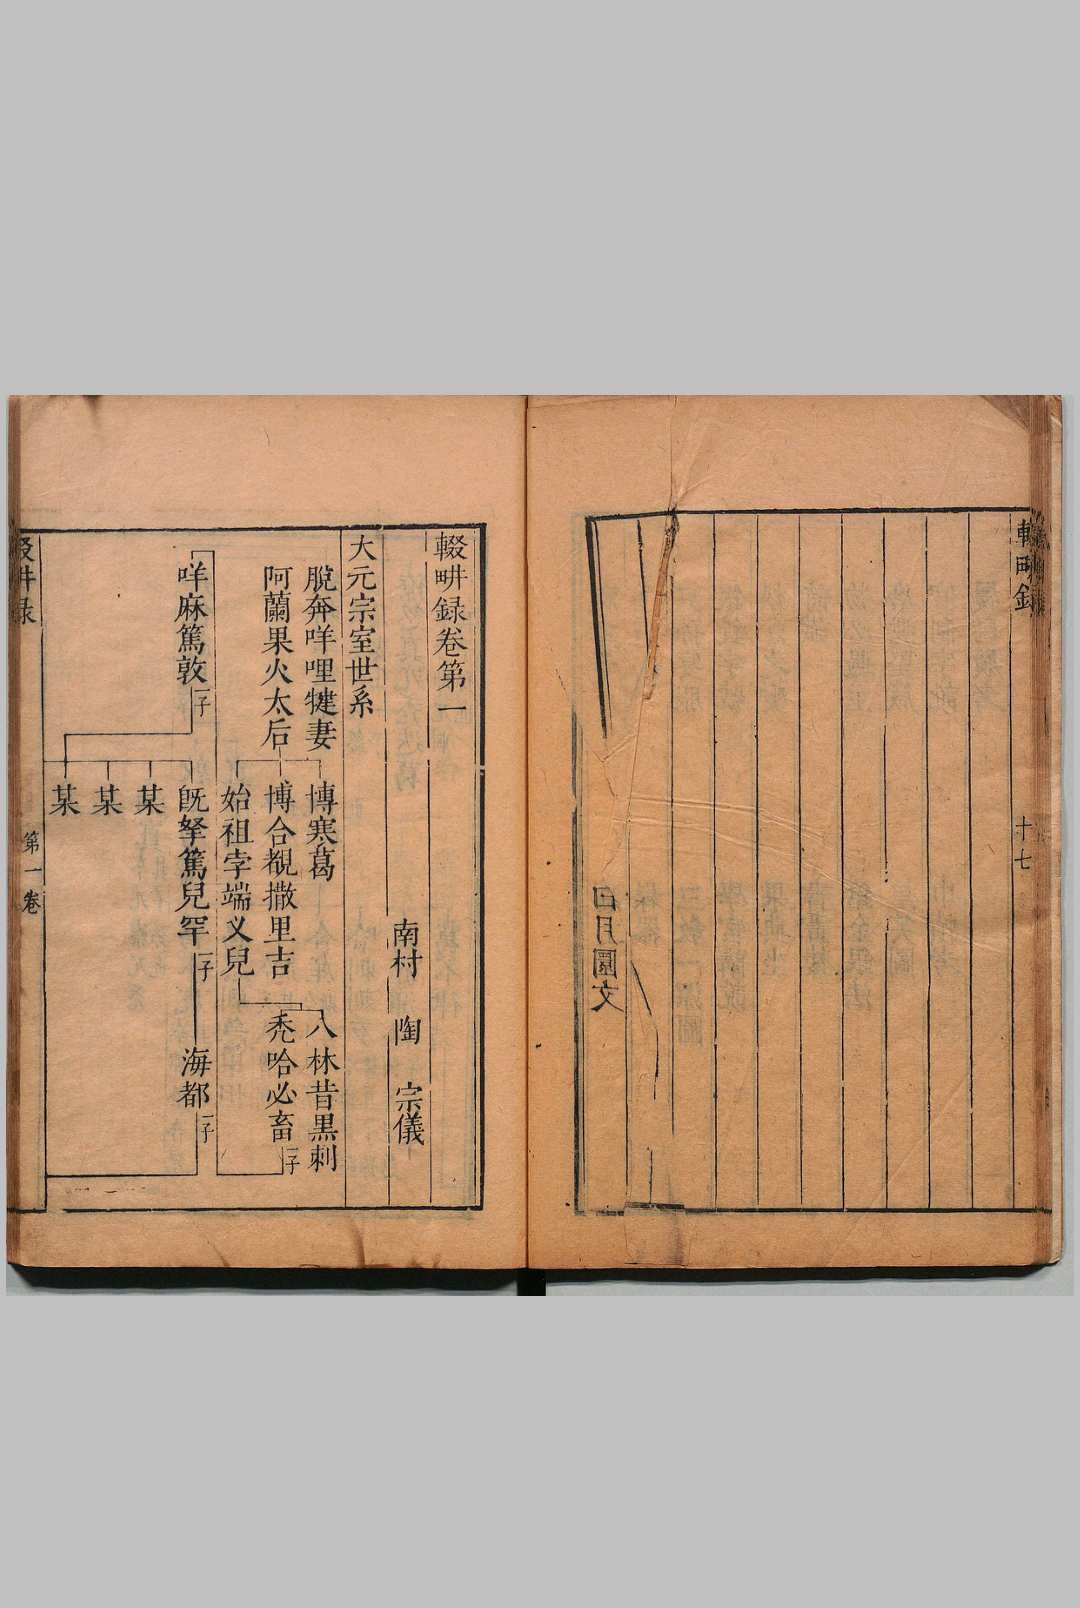 輟畊錄
十七
輟畊錄卷第一
南村 陶 宗儀
大元宗室世系
脫奔咩哩犍妻
阿蘭果火太后
博寒葛
博合覩撒里吉
始祖孛端义兒
八林昔黑剌
禿哈必畜
一子
咩麻篤敦
一子
旣拏篤兒罕
一子
海都
一子
某
某
某
輟畊錄
第一卷